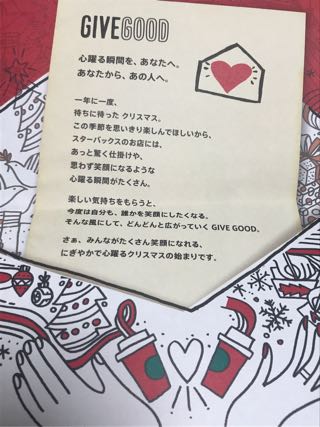 GIVEGOOD
心躍る瞬間を、あなたへ。
あなたから、あの人へ。
一年に一度、
待ちに待った クリスマス。
この季節を思いきり楽しんでほしいから、
スターバックスのお店には、
あっと驚く仕掛けや、
思わず笑顔になるような
心躍る瞬間がたくさん。
楽しい気持ちをもらうと、
今度は自分も、誰かを笑顔にしたくなる。
そんな風にして、どんどんと広がっていく GIVE GOOD.
さぁ、みんながたくさん笑顔になれる、
にぎやかで心躍るクリスマスの始まりです。